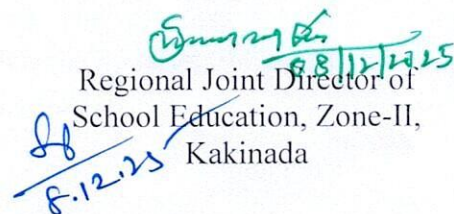 08/12/2025
Regional Joint Director of
School Education, Zone-II,
Kakinada
8.12.25